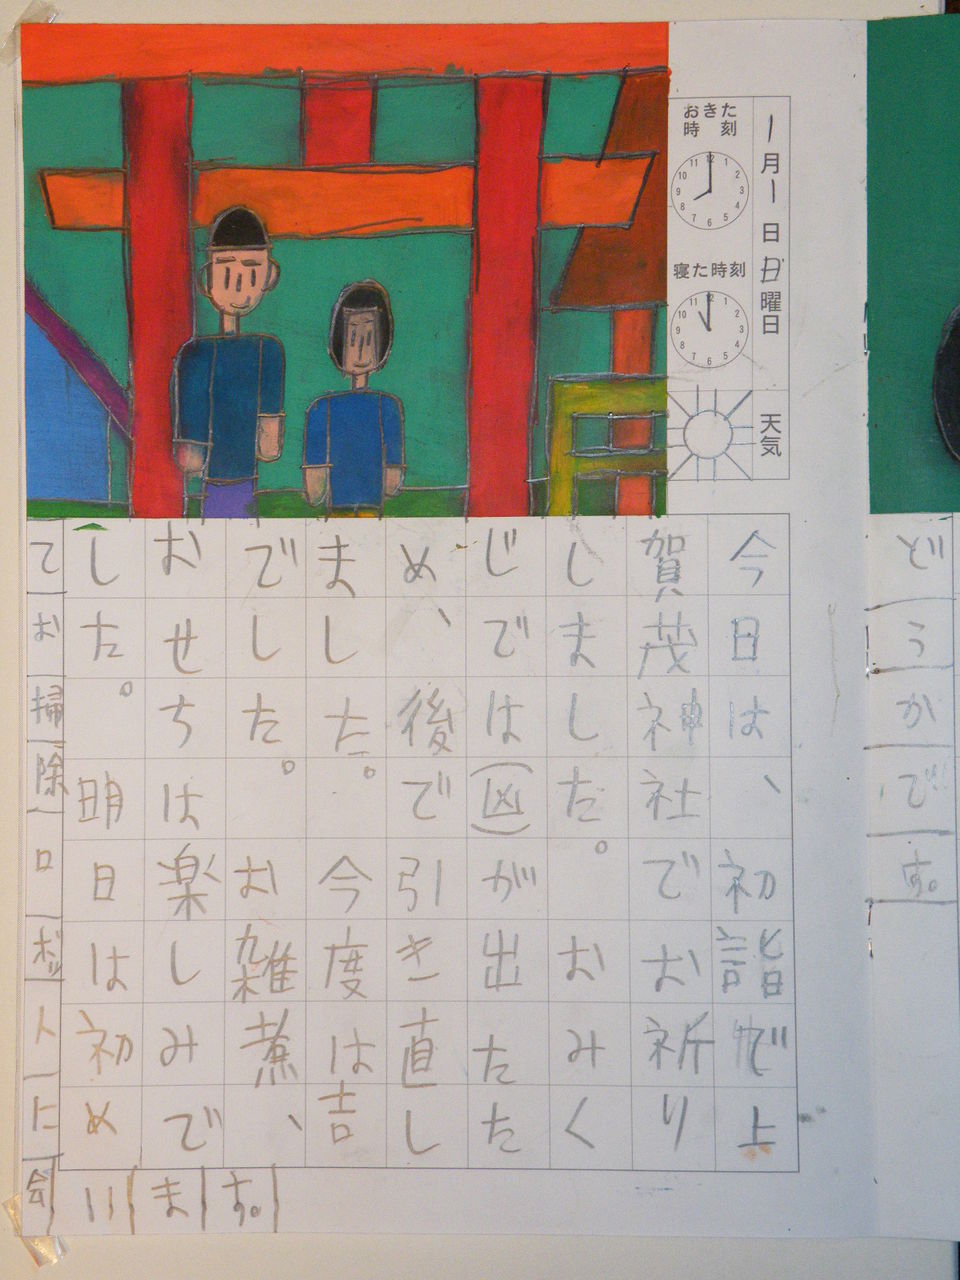 どうかです。
1月1日日曜日
天気
おきた
時刻
12 1 2 3 4 5 6 7 8 9 10 11
寝た時刻
12 1 2 3 4 5 6 7 8 9 10 11
今日は、初詣で上
賀茂神社でお祈り
しました。おみく
じでは(凶)が出たた
め、後で引き直し
ました。今度は吉
でした。お雑煮、
おせちは楽しみで
した。明日は初め
てお掃除ロボットに会
います。